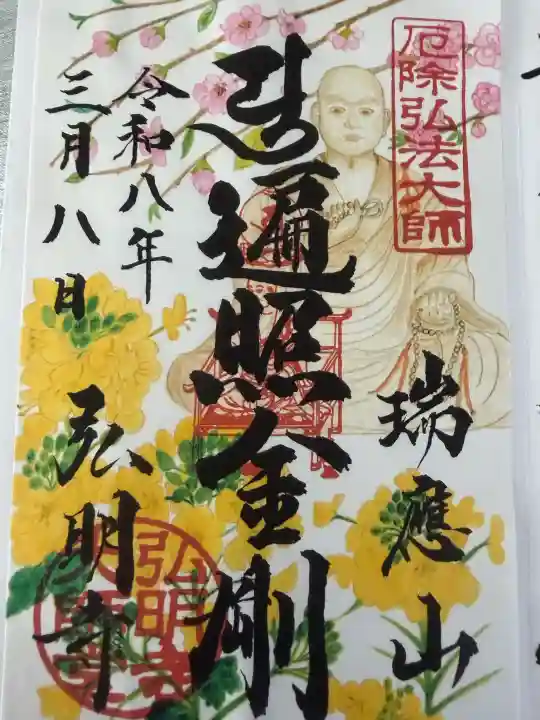 厄除弘法大師
瑞應山
遍照金剛
令和八年
三月八日
弘明寺
弘明寺